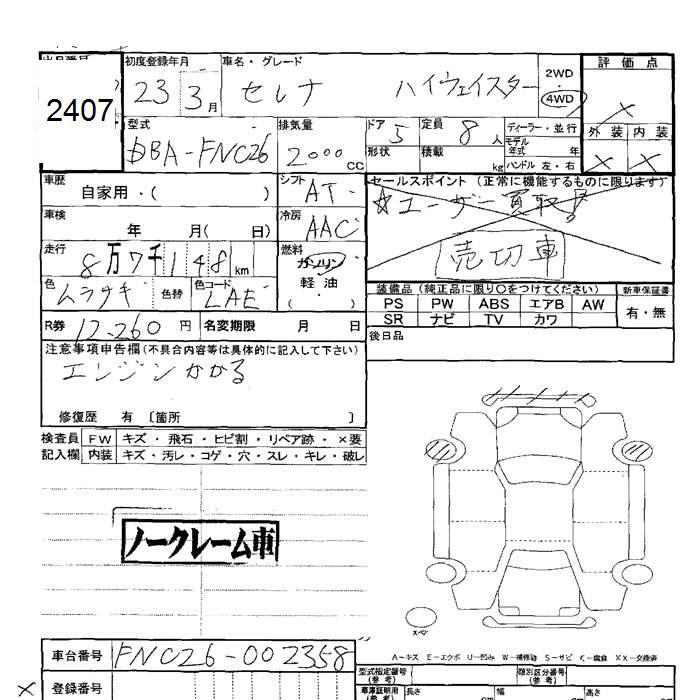 出品番号 初度登録年月 車名・グレード 評価点
2407 23 3月 セレナ ハイウェイスター 2WD 4WD ×
型式 排気量 ドア 5 定員 8人 ディーラー・並行 外装 内装
DBA-FNC26 2000 CC 形状 積載 kg モデル年式 年 ハンドル 左・右 × ×
車歴 自家用・( ) シフト AT セールスポイント (正常に機能するものに限ります)
車検 年 月( 日) 冷房 AAC ☆ユーザー買取!!
走行 8万7千148km 燃料 ガソリン 軽油・( ) 売切車
色 ムラサキ 色替 色コード LAE 装備品 (純正品に限り○をつけてください) 新車保証書
PS PW ABS エアB AW 有・無
R券 12,260円 名変期限 月 日 SR ナビ TV カワ
注意事項申告欄(不具合内容等は具体的に記入して下さい) 後日品
エンジンかかる
修復歴 有 〔箇所 〕
検査員 FW キズ・飛石・ヒビ割・リペア跡・×要
記入欄 内装 キズ・汚レ・コゲ・穴・スレ・キレ・破レ
ノークレーム車
スペア
A-キズ E-エクボ U-凹み W-補修跡 S-サビ C-腐食 XX-交換済
車台番号 FNC26-002358 型式指定番号(参考) 類別区分番号(参考)
× 登録番号 車庫証明用(参考) 長さ 幅 高さ